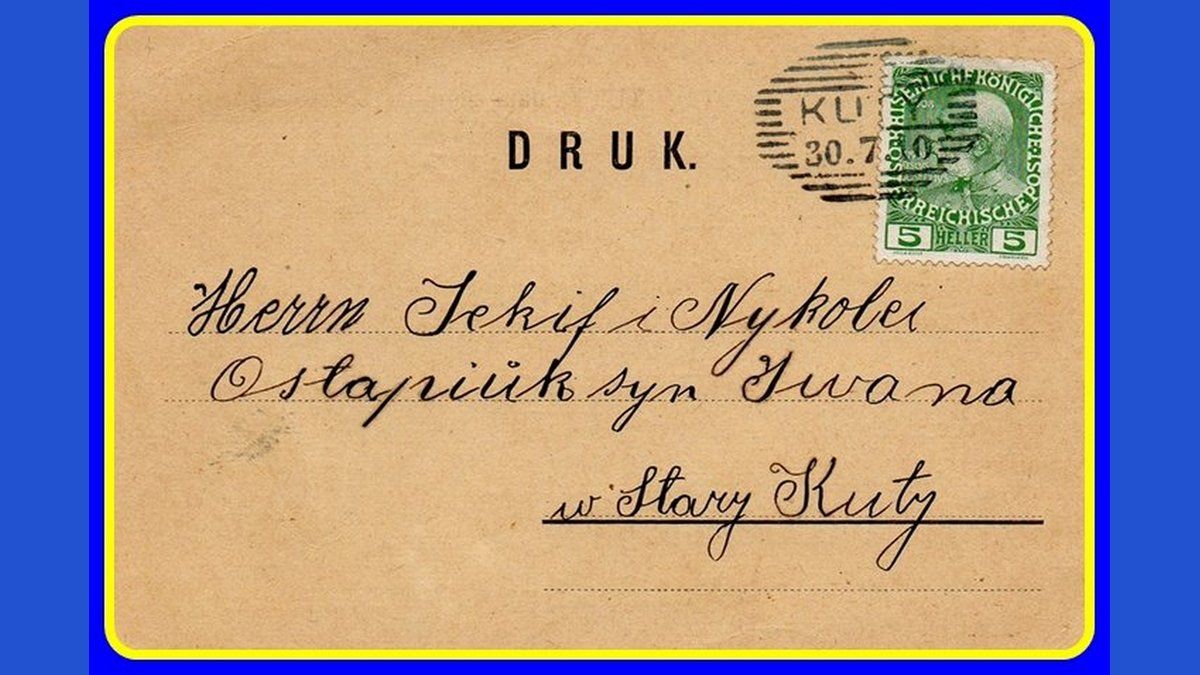 DRUK.
KUT
30.7 10
KAISERLICHE KÖNIGLICHE
ÖSTERREICHISCHE POST
5 HELLER 5
Herrn Jekif i Nykolei
Ostapiük syn Iwana
w Stary Kuty